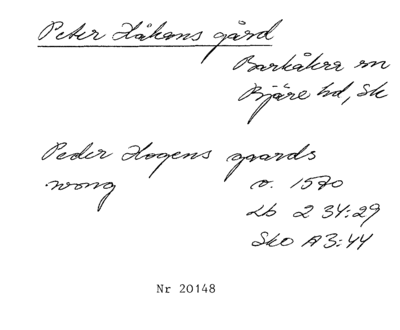 Peter Håkans gård
Barkåkra sn
Bjäre hd, Sk
Peder Hogens gaards
wong
o. 1570
Lb 2 34:29
Sko A3:44
Nr 20148